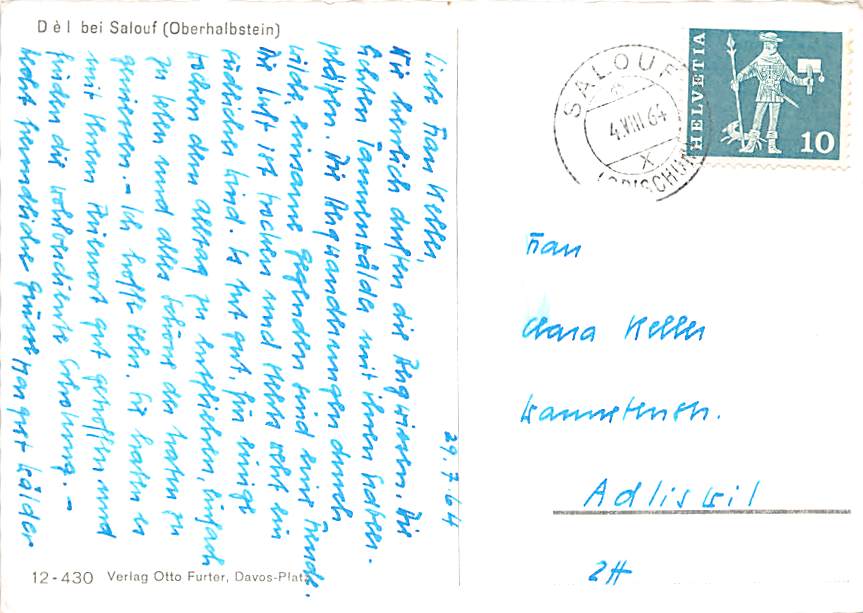 Dèl bei Salouf (Oberhalbstein)
29.7.64
Liebe Frau Keller,
Wie herrlich duften die Bergwiesen, die
lichten Tannenwälder mit ihren satten
Plätzen. Die Bergwanderungen durch
wilde, einsame Gegenden sind eine Freude.
Die Luft ist trocken und stets weht ein
südlicher Wind. Es tut gut, für einige
Wochen dem Alltag zu entfliehen, einfach
zu leben und alles Schöne der Natur zu
geniessen. - Ich hoffe sehr, Sie haben es
mit Ihrem Ferienort gut getroffen und
finden die wohlverdiente Erholung. -
Recht freundliche Grüsse Margrit Wälder
12-430 Verlag Otto Furter, Davos-Platz
SALOUF
4.VIII.64
X
HELVETIA
10
Frau
Clara Keller
Adliswil
ZH